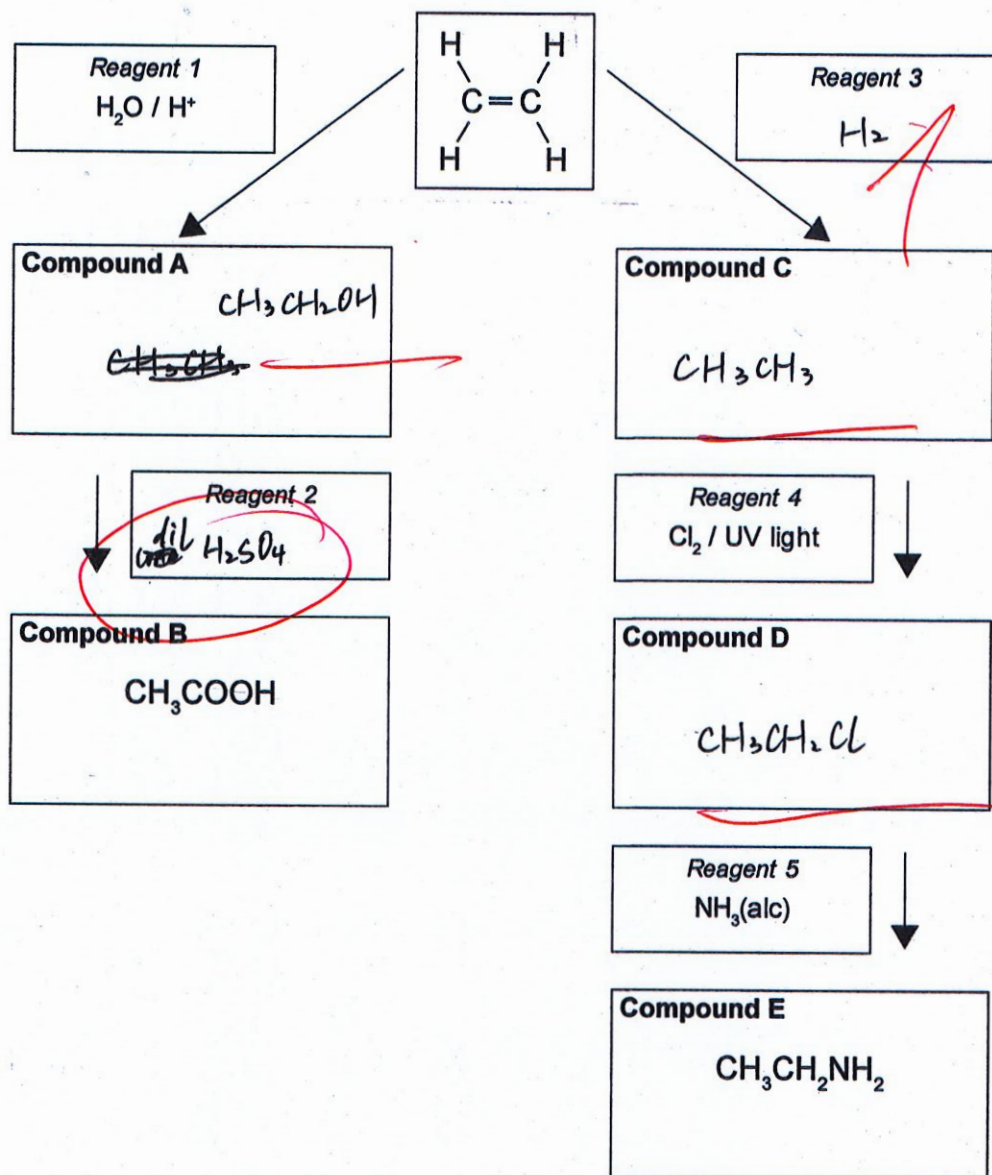 Reagent 1
H₂O / H⁺
H H
C=C
H H
Reagent 3
H₂
Compound A
CH₃CH₂OH
CH₃CH₃
Reagent 2
dil H₂SO₄
Compound B
CH₃COOH
Compound C
CH₃CH₃
Reagent 4
Cl₂ / UV light
Compound D
CH₃CH₂Cl
Reagent 5
NH₃(alc)
Compound E
CH₃CH₂NH₂